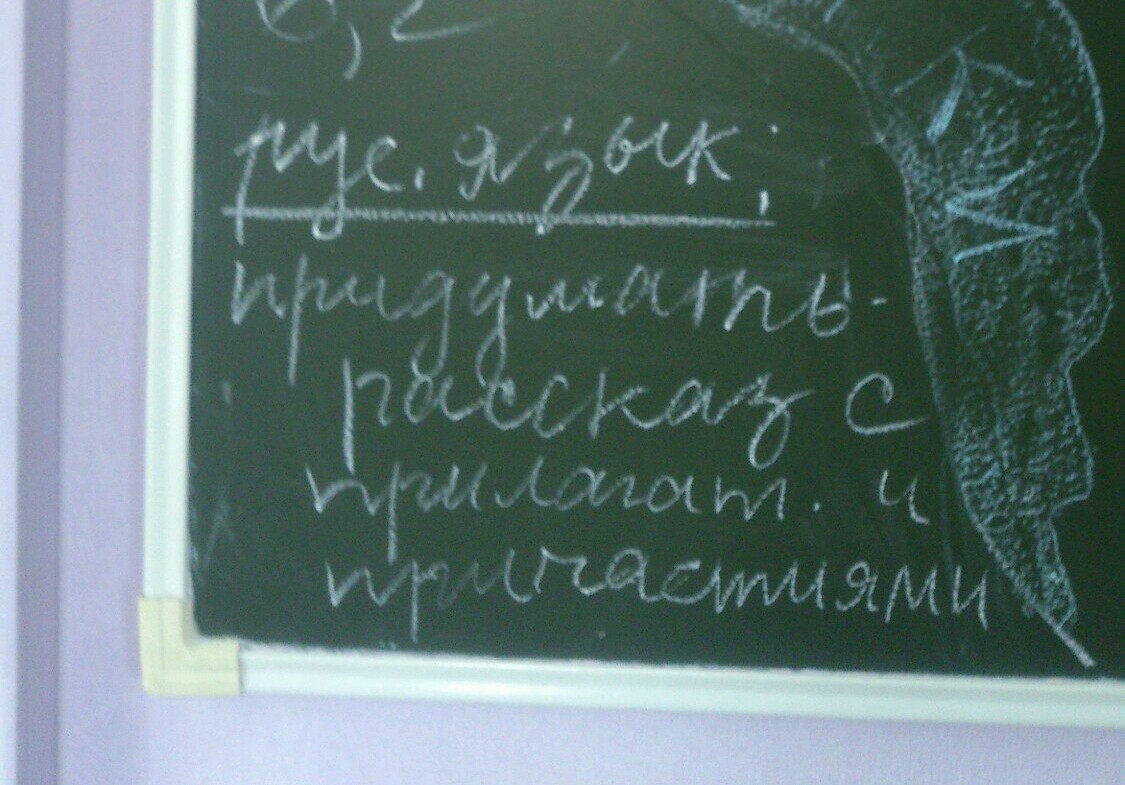 рус. язык:
придумать-
рассказ с
прилагат. и
причастиями